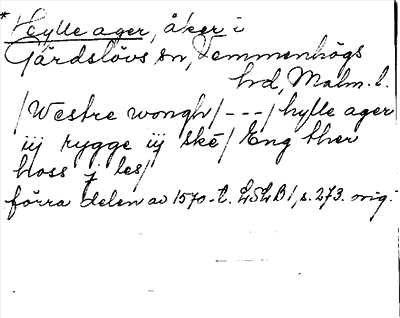 * Hylle ager, åker i
Gärdslövs sn, Vemmenhögs
hd, Malm. l.
/Westre wongh/ --- / hylle ager
iij rygge iij ské / Eng ther
hoss j les/
förra delen av 1570-t. LSLB1, s. 273. orig.